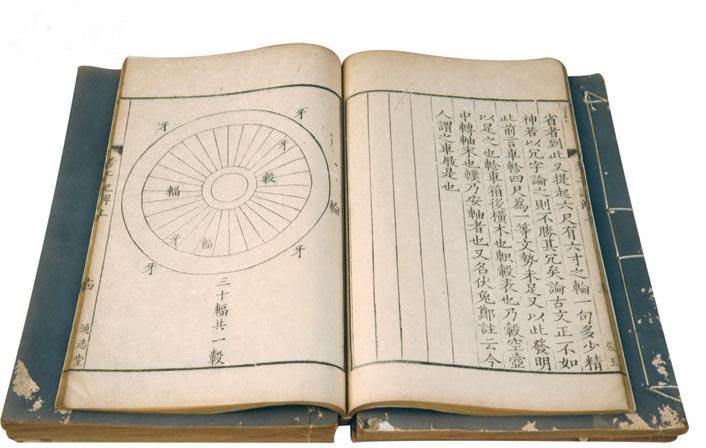 省者到此又提起六尺有六寸之輪一句多少精
神若以冗字論之則不勝其冗矣論古文正不如
此前言車軫四尺爲一等文勢未足又以此發明
以足之也軫車箱後橫木也軹轂表也乃轂空壺
中轉軸木也轐乃安軸者也又名伏兔鄭註云今
人謂之車屐是也
輪
牙
牙
牙
轂
輻
牙
輻
牙
牙
三十輻共一轂
記解上
通志堂